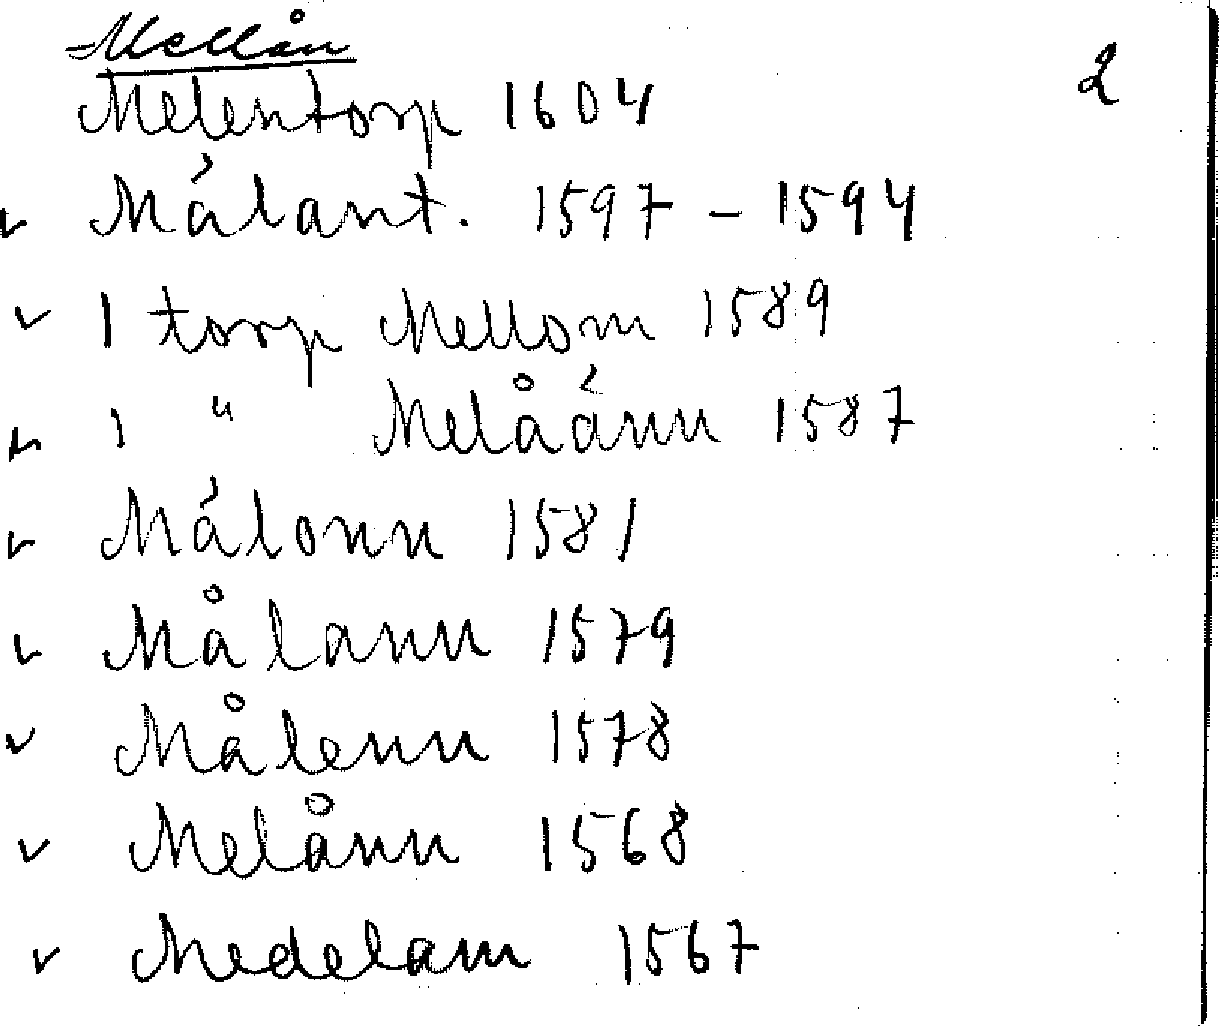 Mellån
2
Melentorp 1604
✓ Målant. 1597 - 1594
✓ 1 torp Mellom 1589
✓ 1 " Melåånn 1587
✓ Målonn 1581
✓ Målann 1579
✓ Målenn 1578
✓ Melånn 1568
✓ Medelam 1567